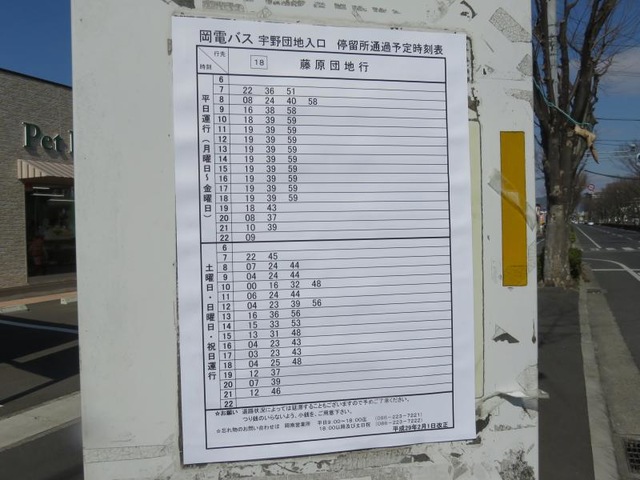 岡電バス 宇野団地入口 停留所通過予定時刻表
行先
時刻
18 藤原団地行
平日運行(月曜日~金曜日)
6
7 22 36 51
8 08 24 40 58
9 16 38 58
10 18 39 59
11 19 39 59
12 19 39 59
13 19 39 59
14 19 39 59
15 19 39 59
16 19 39 59
17 19 39 59
18 19 39 59
19 18 43
20 08 37
21 10 39
22 09
土曜日・日曜日・祝日運行
6
7 22 45
8 07 24 44
9 04 24 44
10 00 16 32 48
11 06 24 44
12 04 23 39 56
13 16 36 56
14 15 33 53
15 13 31 48
16 04 23 43
17 03 23 43
18 04 25 48
19 12 37
20 07 39
21 12 46
22
☆お願い 道路状況によっては延着することもございますので予めご了承ください。
つり銭のいらないよう、小銭を、ご用意下さい。
☆お忘れ物のお問い合わせは 岡南営業所 平日9:00~18:00迄 (086-223-7221)
18:00以降及び土日祝 (086-222-7222)
平成29年2月1日改正
Pet